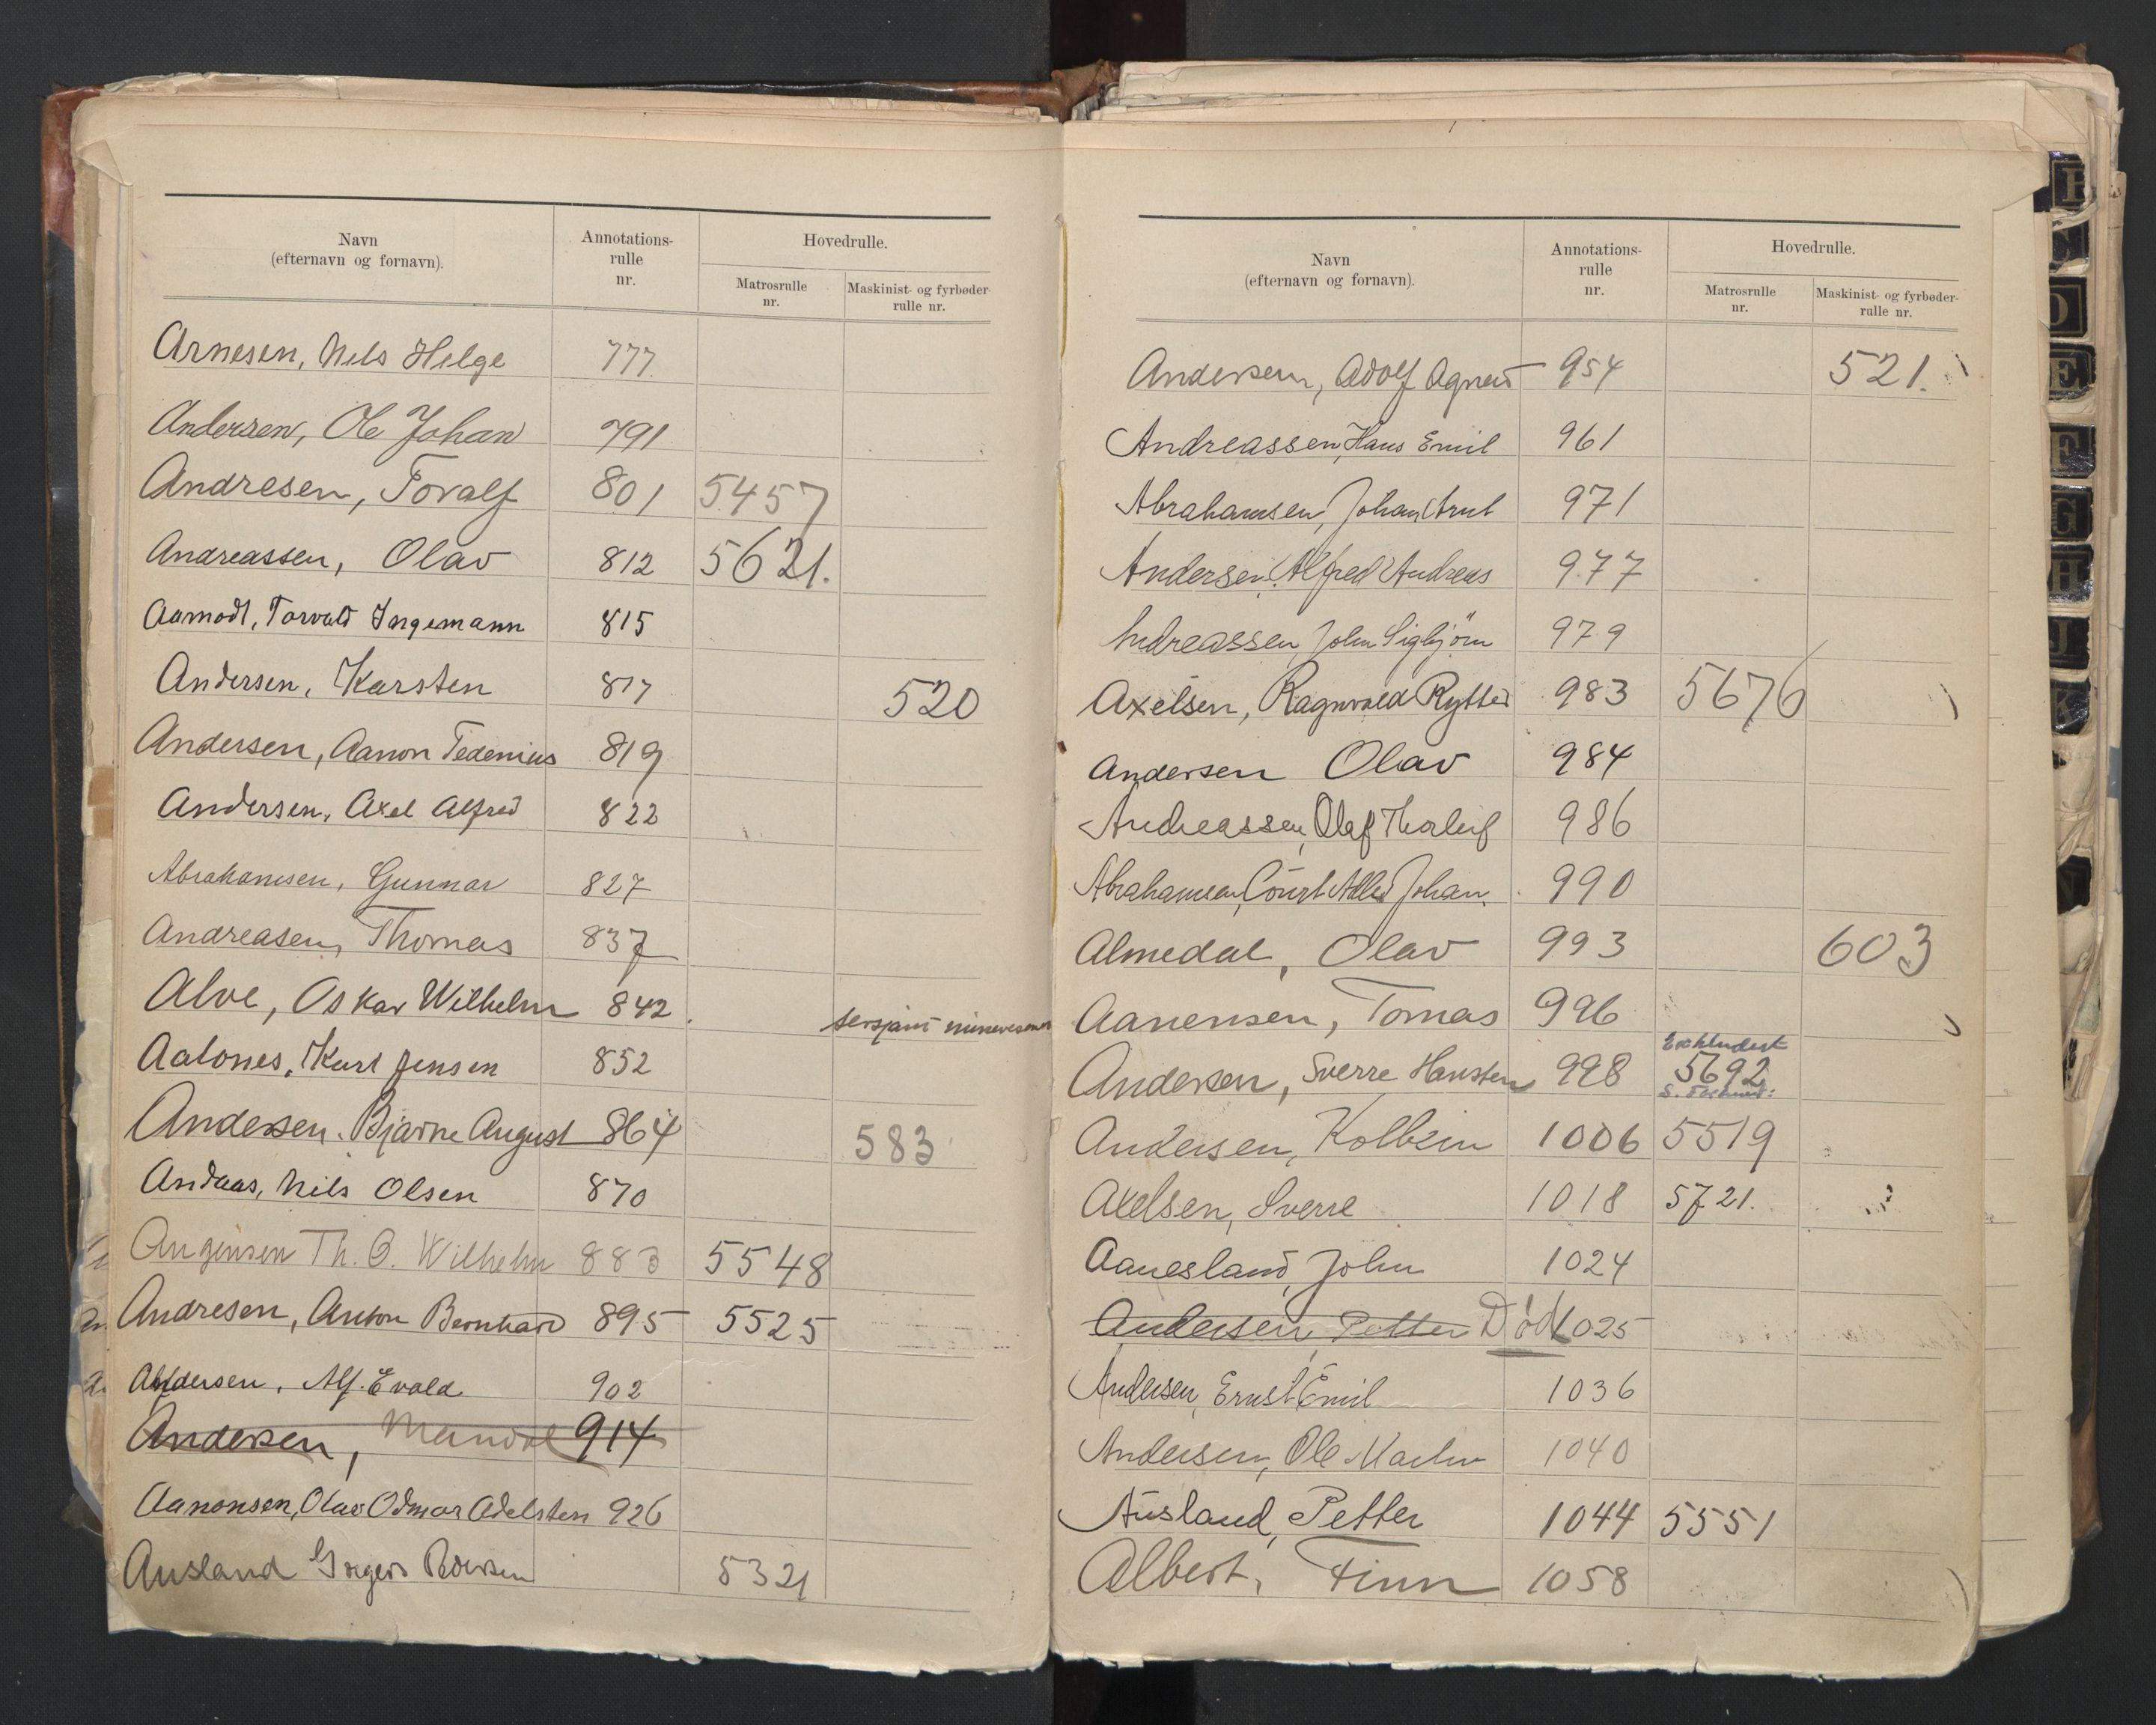 Navn
(efternavn og fornavn).
Annotations-
rulle
nr.
Hovedrulle.
Matrosrulle
nr.
Maskinist- og fyrbøder-
rulle nr.
Arnesen, Nils Helge 777
Andersen, Ole Johan 791
Andresen, Toralf 801 5457
Andreassen, Olav 812 5621.
Aamodt, Torvald Ingemann 815
Andersen, Karsten 817 520
Andersen, Aanon Tedenius 819
Andersen, Axel Alfred 822
Abrahamsen, Gunnar 827
Andreasen, Thomas 837
Alve, Oskar Wilhelm 842. sersjant minevesenet
Aalones, Kurt Jensen 852
Andersen, Bjarne August 864 583
Andaas, Nils Olsen 870
Angensen Th. O. Wilhelm 883 5548
Andresen, Anton Bernhard 895 5525
Andersen, Alf. Evald 902
Andersen, 914
Aanonsen, Olav Odmar Adelsten 926
Ausland Pedersen 5321
Navn
(efternavn og fornavn).
Annotations-
rulle
nr.
Hovedrulle.
Matrosrulle
nr.
Maskinist- og fyrbøder-
rulle nr.
Andersen, Adolf Agnar 954 521.
Andreassen, Hans Emil 961
Abrahamsen, Johan Arnt 971
Andersen, Alfred Andreas 977
Andreassen, John Sigbjörn 979
Axelsen, Ragnvald Rytter 983 5676
Andersen Olav 984
Andreassen, Olaf Thorleif 986
Abrahamsen, Court Adler Johan. 990
Almedal, Olav 993 603
Aanensen, Tomas 996
Exkludert
Andersen, Sverre Hansten 998 5692
Andersen, Kolbein 1006 5519
Axelsen, Sverre 1018 5721.
Aanesland, John 1024
Andersen, Petter Död 1025
Andersen, Ernst Emil 1036
Andersen, Ole Martin 1040
Ausland, Petter 1044 5551
Albert, Finn 1058